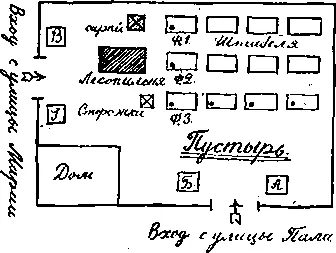 Вход с улицы Марии
В
сарай
Ф1.
Штабеля
Лесопильня
Ф2.
Г
Сторожка
Ф.3.
Пустырь.
Дом
Б
А
Вход с улицы Пала